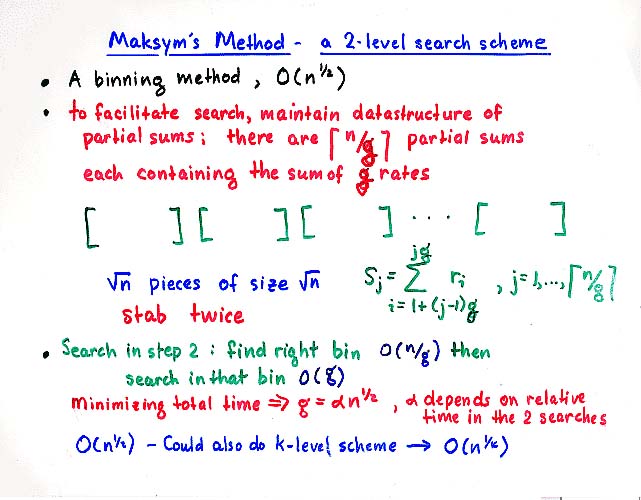 Maksym's Method - a 2-level search scheme
• A binning method, O(n^{1/2})
• to facilitate search, maintain datastructure of
partial sums; there are ⌈n/g⌉ partial sums
each containing the sum of g rates
[ ] [ ] [ ] ... [ ]
√n pieces of size √n S_j = Σ_{i=1+(j-1)g}^{jg} r_i , j=1,...,⌈n/g⌉
stab twice
• Search in step 2 : find right bin O(n/g) then
search in that bin O(g)
Minimizing total time ⇒ g = αn^{1/2} , α depends on relative
time in the 2 searches
O(n^{1/2}) - Could also do k-level scheme → O(n^{1/k})